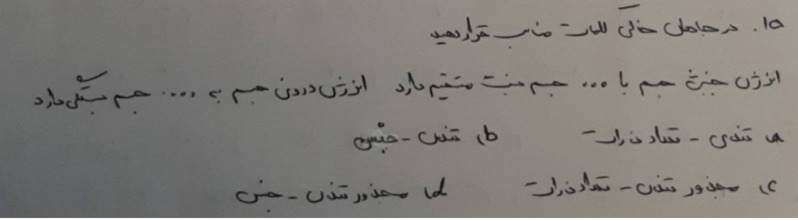 ۱۵. در جاهای خالی کلمات مناسب قرار دهید
انرژی جنبشی جسم با ... جسم نسبت مستقیم دارد انرژی درونی جسم به .... جسم بستگی دارد
a) تندی - تعداد ذرات b) تندی - جنس
c) مجذور تندی - تعداد ذرات d) مجذور تندی - جنس